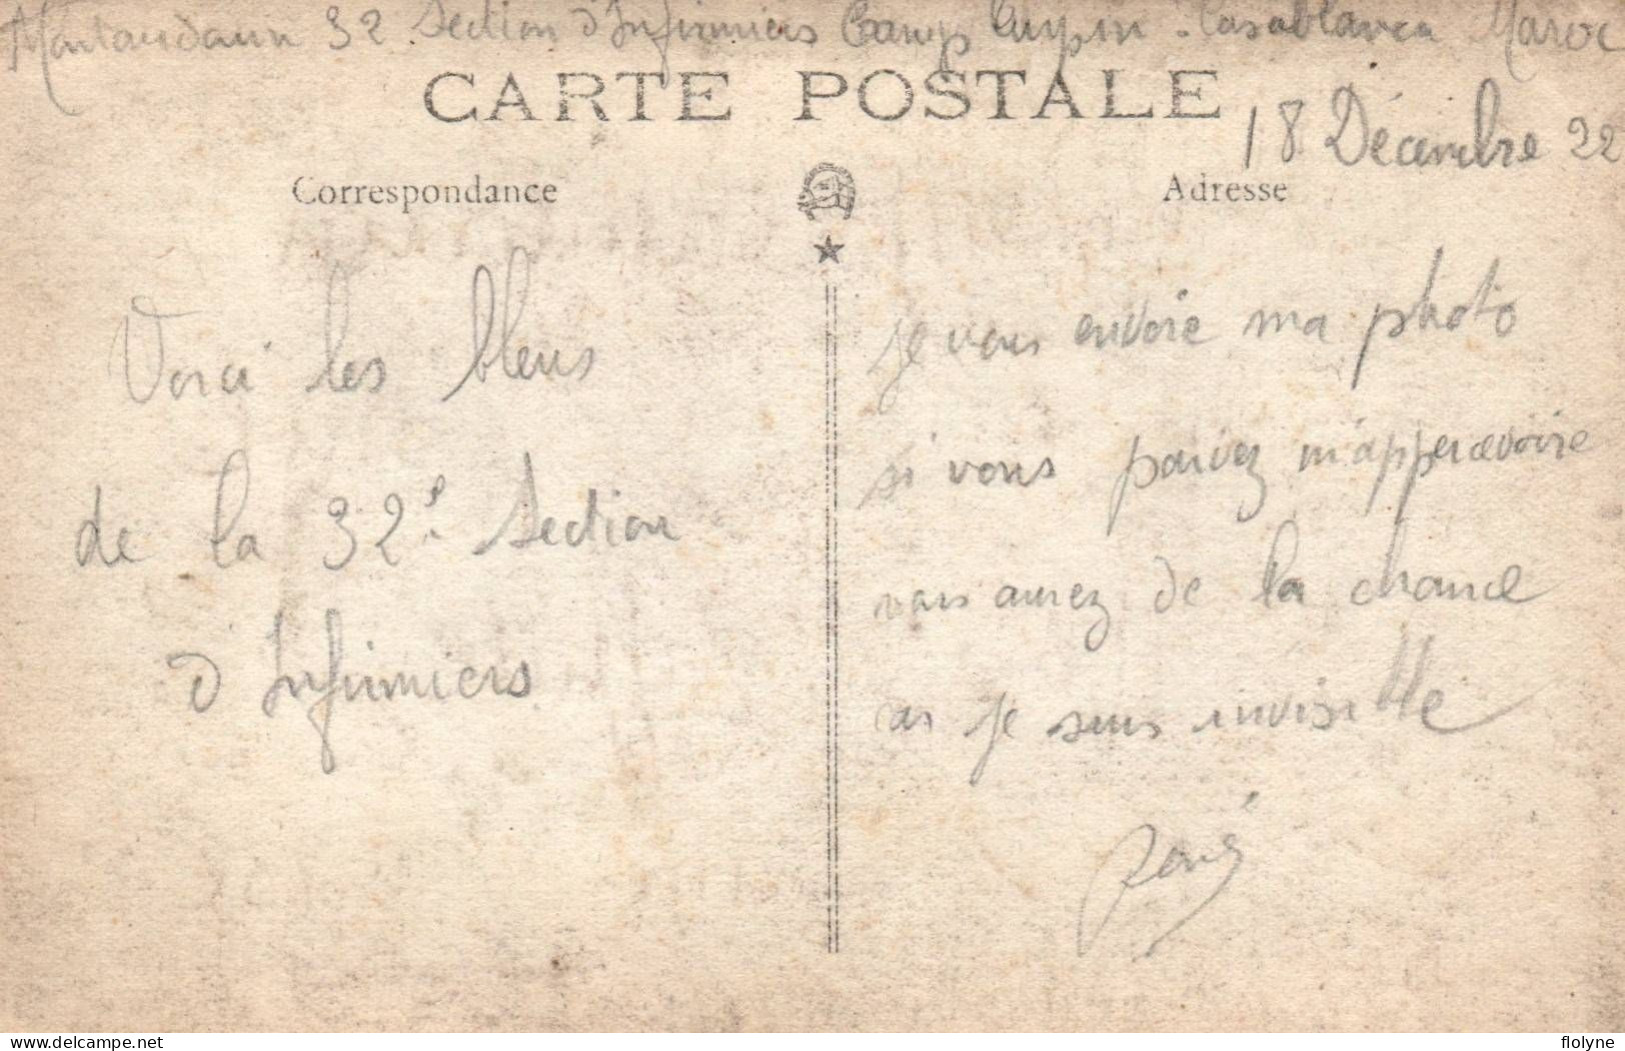 Montaudouin 32 Section d'Infirmiers Camp Turpin. Casablanca Maroc
CARTE POSTALE
18 Décembre 22
Correspondance
Adresse
Voici les bleus
de la 32e Section
d'Infirmiers
je vous envoie ma photo
si vous pouvez m'appercevoire
vous aurez de la chance
car je suis invisible
René
www.delcampe.net
flolyne